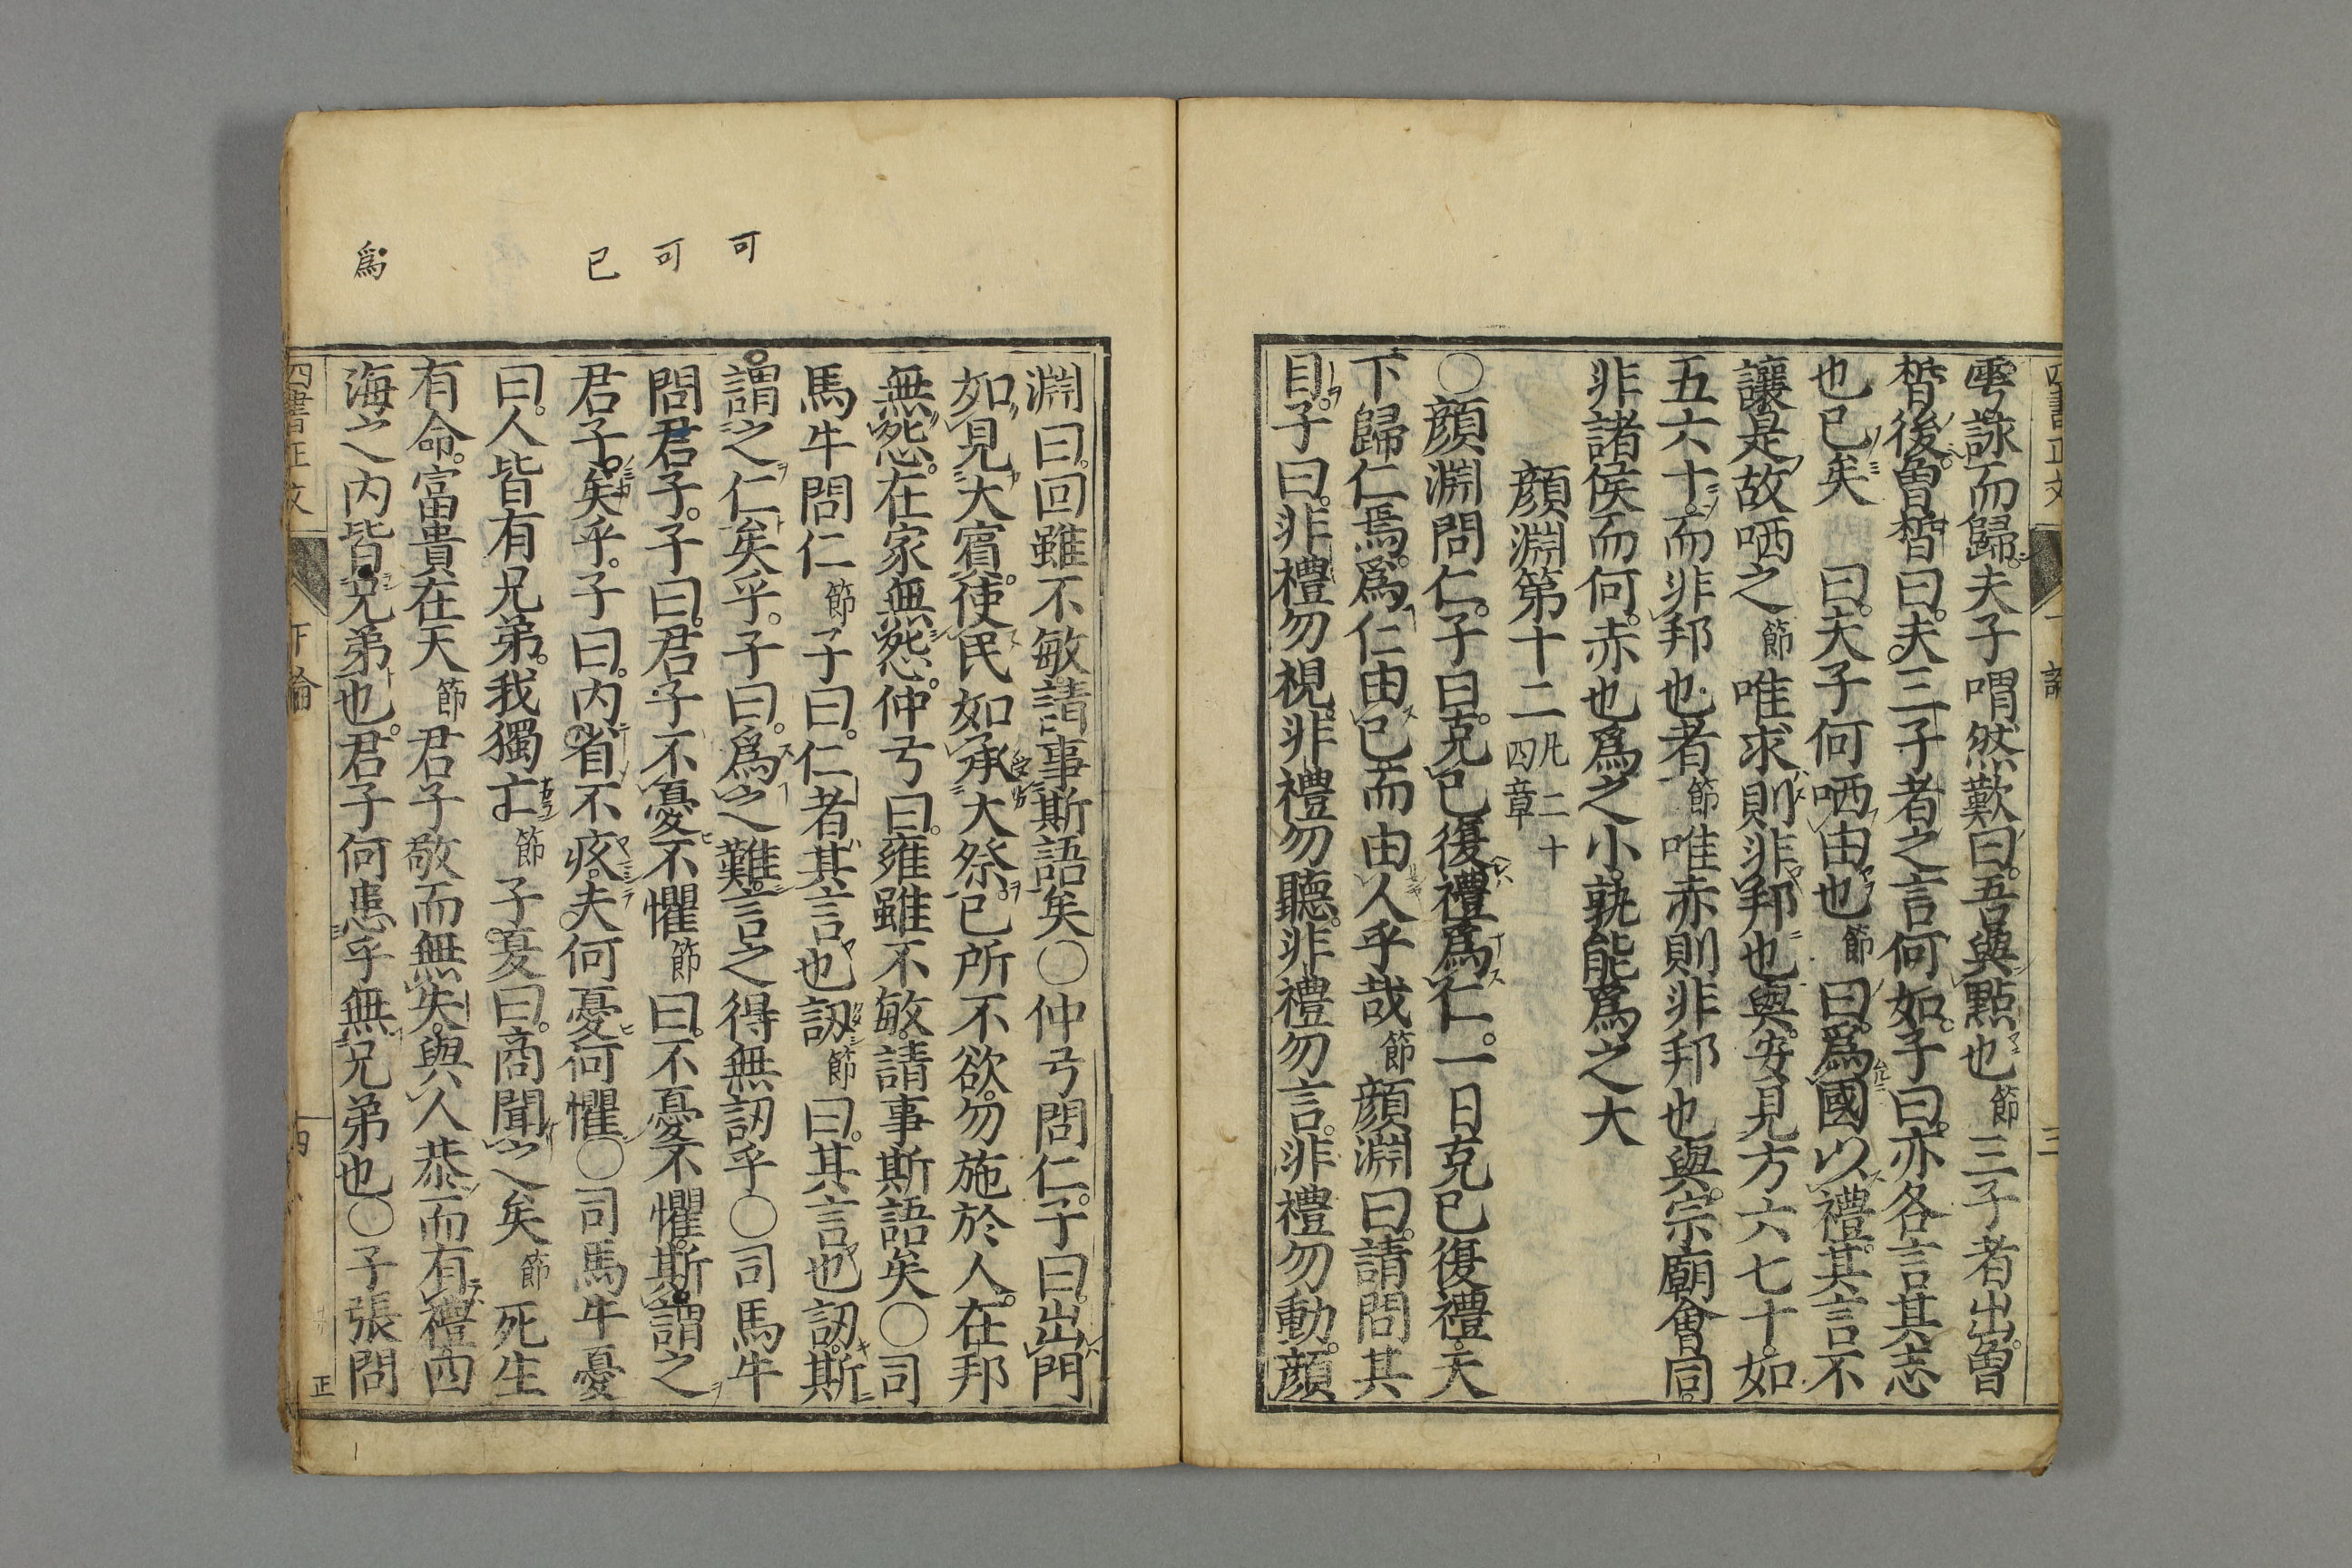 雩詠而歸。夫子喟然歎曰。吾與點也節三子者出。曾
皙後。曾皙曰。夫三子者之言何如。子曰。亦各言其志
也已矣 曰。夫子何哂由也節曰。爲國以禮。其言不
讓是故哂之節唯求則非邦也與。安見方六七十。如
五六十。而非邦也者節唯赤則非邦也與。宗廟會同。
非諸侯而何。赤也爲之小。孰能爲之大
顔淵第十二凡二十四章
〇顔淵問仁。子曰。克已復禮爲仁。一日克已復禮。天
下歸仁焉。爲仁由已而由人乎哉節顔淵曰。請問其
目。子曰。非禮勿視。非禮勿聽。非禮勿言。非禮勿動。顔
淵曰。回雖不敏。請事斯語矣〇仲弓問仁。子曰。出門
如見大賓。使民如承大祭。已所不欲。勿施於人。在邦
無怨。在家無怨。仲弓曰。雍雖不敏。請事斯語矣〇司
馬牛問仁節子曰。仁者其言也訒節曰。其言也訒。斯
謂之仁矣乎。子曰。爲之難。言之得無訒乎〇司馬牛
問君子。子曰。君子不憂不懼節曰。不憂不懼。斯謂之
君子矣乎。子曰。内省不疚。夫何憂何懼〇司馬牛憂
曰。人皆有兄弟。我獨亡節子夏曰。商聞之矣節死生
有命。富貴在天節君子敬而無失。與人恭而有禮四
海之内皆兄弟也。君子何患乎無兄弟也〇子張問
可
可
已
爲
四書正文
下論
正